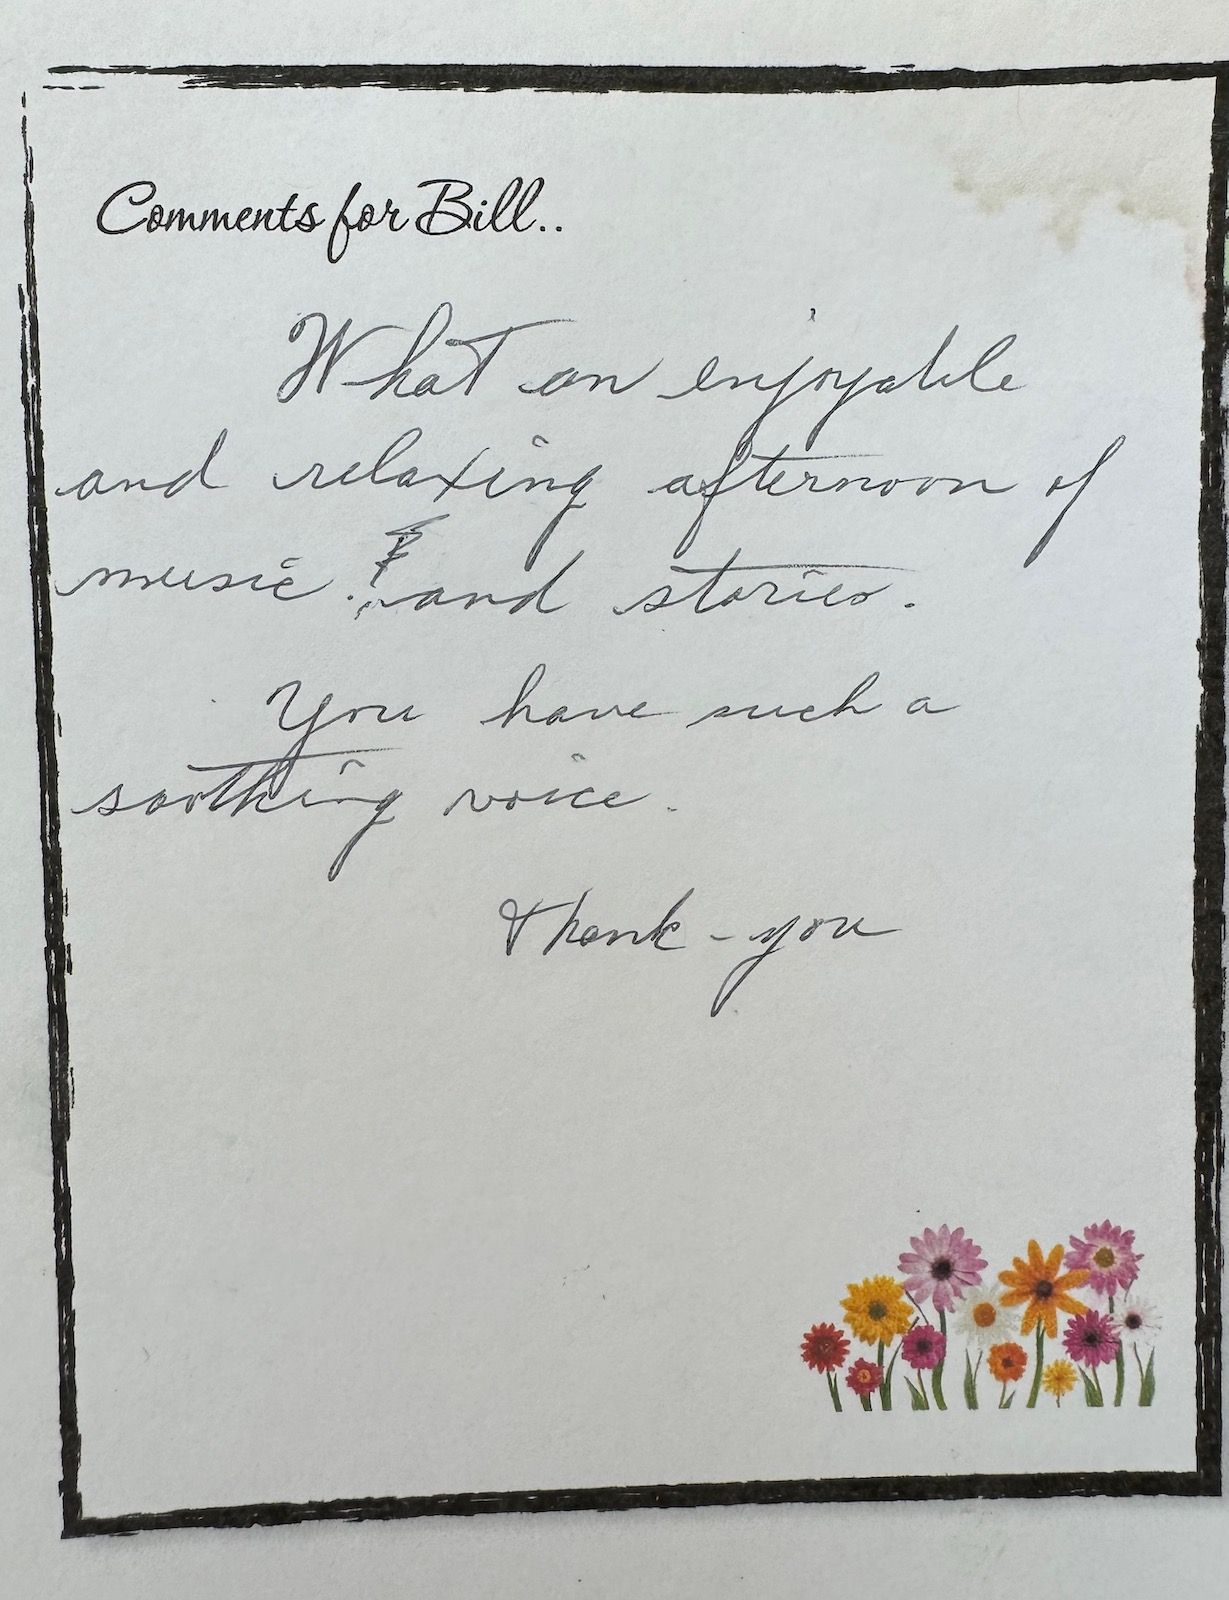 Comments for Bill..
What an enjoyable
and relaxing afternoon of
music. and stories.
You have such a
soothing voice.
Thank-you